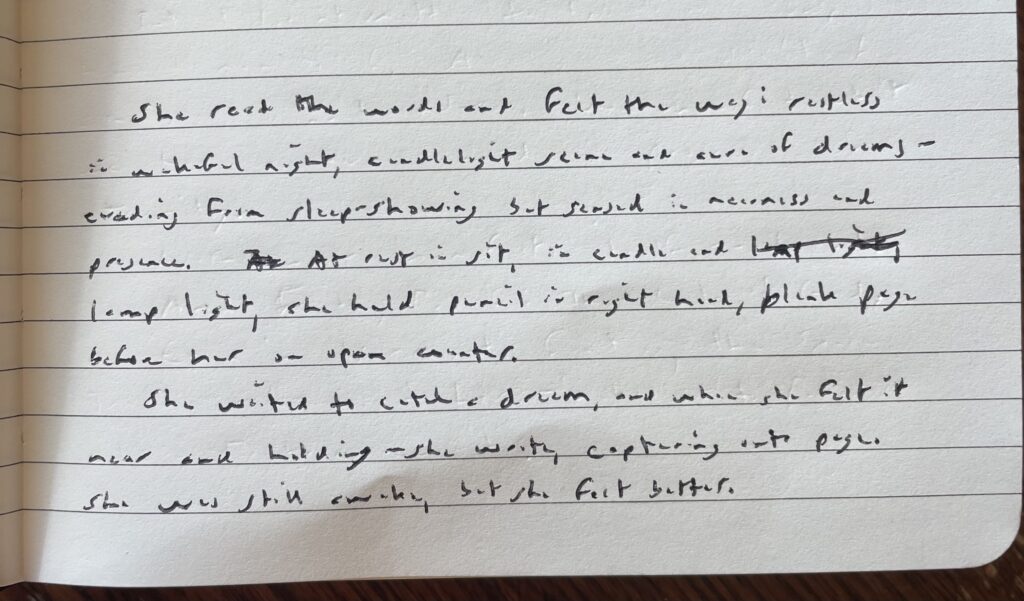 She read the words and felt the way: restless
in wakeful night, candlelight serene and aura of dreams -
evading from sleep-showing but sensed in nearness and
presence. At At rest in sit, in candle and lamp light,
lamp light, she held pencil in right hand, blank page
before her on upon counter.
She waited to catch a dream, and when she felt it
near and holding - she wrote, capturing onto page.
She was still awake, but she felt better.